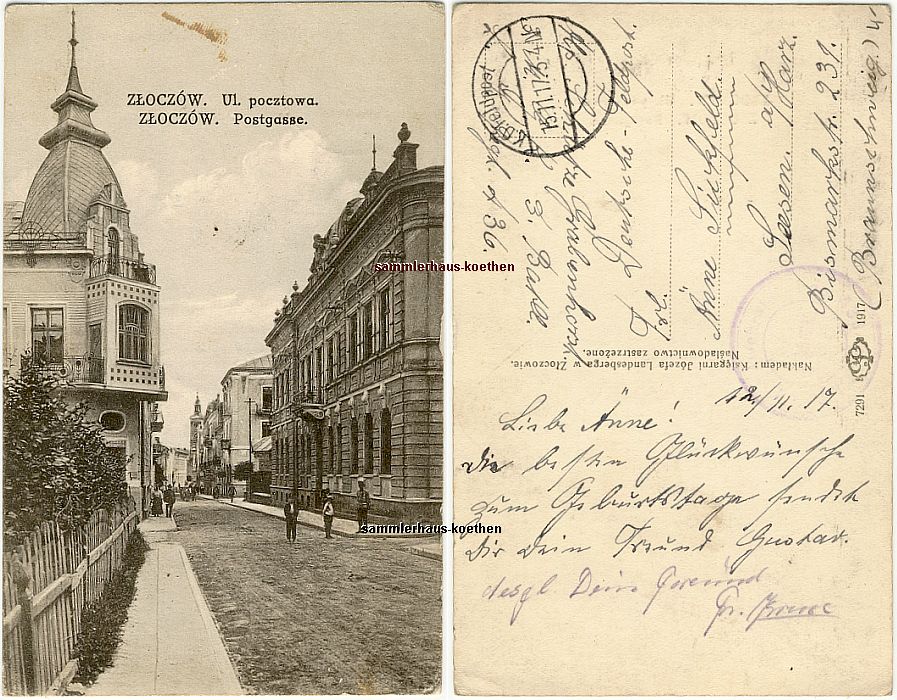 ZŁOCZÓW. Ul. pocztowa.
ZŁOCZÓW. Postgasse.
sammlerhaus-koethen
sammlerhaus-koethen
Deutsche Feldpost.
Frl.
Änne
Seesen. a/
Harz.
Bismarckstr. 231.
(Braunschweig)
Nakładem: Księgarni Józefa Landesberga w Złoczowie.
Naśladownictwo zastrzeżone.
7291
1917
12/11. 17.
Liebe Änne!
Die besten Glückwünsche
zum Geburtstage sendet
Dir Dein Freund Gustav.
desgl. Dein Freund
Fr.